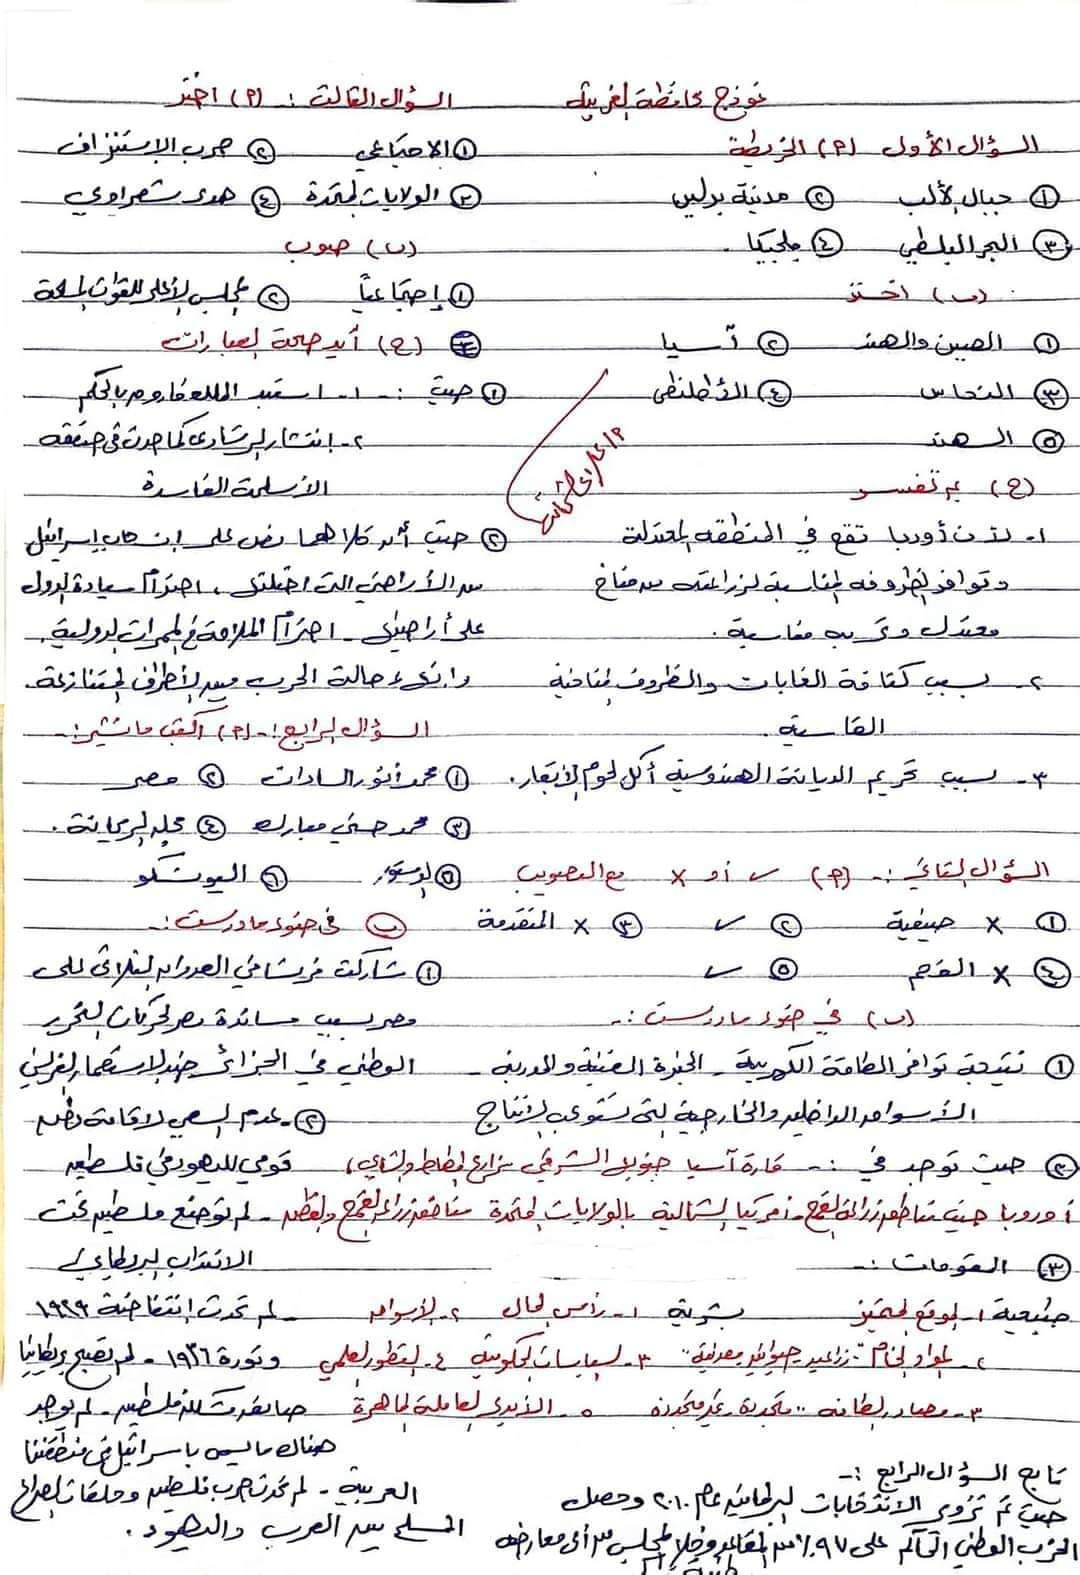 نموذج محافظة الغربية
السؤال الأول (٢) الخريطة
① جبال الألب ② مدينة برلين
③ البحر البلطي ④ بلجيكا.
(ب) اختر
① الصين والهند ② آسيا
③ النحاس ④ الأطلنطى
⑤ الهند
(ج) بم تفسر
١- لأن أوربا تقع في المنطقة المعتدلة
وتوافر الظروف المناسبة لزراعته من مناخ
معتدل وتربة مناسبة.
٢- بسبب كثافة الغابات والظروف المناخية
القاسية.
٣- بسبب تحريم الديانة الهندوسية أكل لحوم الأبقار.
السؤال الثاني :- (٢) ✓ أو x مع التصويب
① x صيفية ② ✓ ③ x المتقدمة
④ x الفحم ⑤ ✓
(ب) في ضوء ما درست :-
① نتيجة توافر الطاقة الكهربية - الخبرة الفنية والمدربة -
الأسواق الداخلية والخارجية التى تستوعب الإنتاج
② حيث توجد في :- قارة آسيا جنوب الشرقي مزارع المطاط والشاي)
أوروبا حيث مناطق زراعة القمح - أمريكا الشمالية بالولايات المتحدة مناطق زراعة القمح والقطن
③ المقومات :-
طبيعية ١- الموقع المتميز بشرية ١- رأس المال ٢- الأسواق
٢- المواد الخام "زراعية حيوانية معدنية" ٣- السياسات الحكومية ٤- التطور العلمي
٣- مصادر الطاقة "متجددة - غير متجددة ٥- الأيدى العاملة الماهرة
تابع السؤال الرابع :-
حيث تم تزوير الانتخابات البرلمانية عام ٢٠١٠ وحصل
الحزب الوطني الحاكم على ٩٧٪ من المقاعد وخلا المجلس من أى معارضة
السؤال الثالث :- (٢) اختر
① الاجتماعي ② حرب الاستنزاف
③ الولايات المتحدة ④ هدى شعراوي
(ب) صوب
① إجتماعياً ② المجلس الأعلى للقوات المسلحة
(ج) أيد صحة العبارات
① حيث :- ١- استبد الملك فاروق بالحكم
٢- انتشار الرشاوى كما حدث في صفقة
الأسلحة الفاسدة
② حيث أن كلاهما نص على انسحاب إسرائيل
من الأراضي التى احتلتها، احترام سيادة الدول
على أراضيها - احترام الملاحة في الممرات الدولية.
وإنهاء حالة الحرب بين الأطراف المتنازعة.
السؤال الرابع :- (٢) أكتب ما تشير :-
① محمد أنور السادات ② مصر
③ محمد حسني مبارك ④ مجلة الريحانة.
⑤ الدستور ⑥ اليونسكو
(ب) في ضوء ما درست :-
① شاركت فرنسا في العدوان الثلاثي على
مصر بسبب مساندة مصر لحركات التحرر
الوطني في الجزائر ضد الاستعمار الفرنسي
② - عدم السعي لاقامة وطن
قومي لليهود في فلسطين
- لم توضع فلسطين تحت
الانتداب البريطاني /
- لم تحدث إنتفاضة ١٩٢٩
وثورة ١٩٣٦ - لم تصبح بريطانيا
فلسطين - لم يوجد
هناك ما يسمى باسرائيل في منطقتنا
العربية - لم تحدث حرب فلسطين وحلقات الصراع
المسلح بين العرب واليهود.